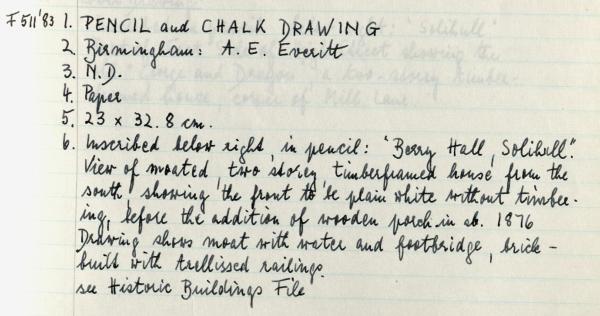 F511'83 1. PENCIL and CHALK DRAWING
2. Birmingham: A. E. Everitt
3. N.D.
4. Paper
5. 23 x 32.8 cm.
6. Inscribed below right, in pencil: "Berry Hall, Solihull".
View of moated, two storey timberframed house from the
south, showing the front to be plain white without timber-
ing, before the addition of wooden porch in ab. 1876
Drawing shows moat with water and footbridge, brick-
built with trellissed railings.
see Historic Buildings File